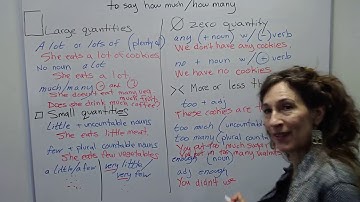 to say how much/how many
Large quantities
A lot or lots of (plenty of)
She eats a lot of cookies.
No noun a lot
She eats a lot.
much/many
She doesn't eat many veg
Does she drink much coffee?
Small quantities
little + uncountable nouns
She eats little meat.
few + plural countable nouns
She eats few vegetables
a little/a few very little/
very few
Ø zero quantity
any (+ noun) w/ (-) verb
We don't have any cookies.
no + noun w/ (+) verb
We have no cookies.
More or less th
too + adj
These cakes are
too much (uncount
too many (plural count
You put too much sugar
enough (noun)
adj enough
You didn't